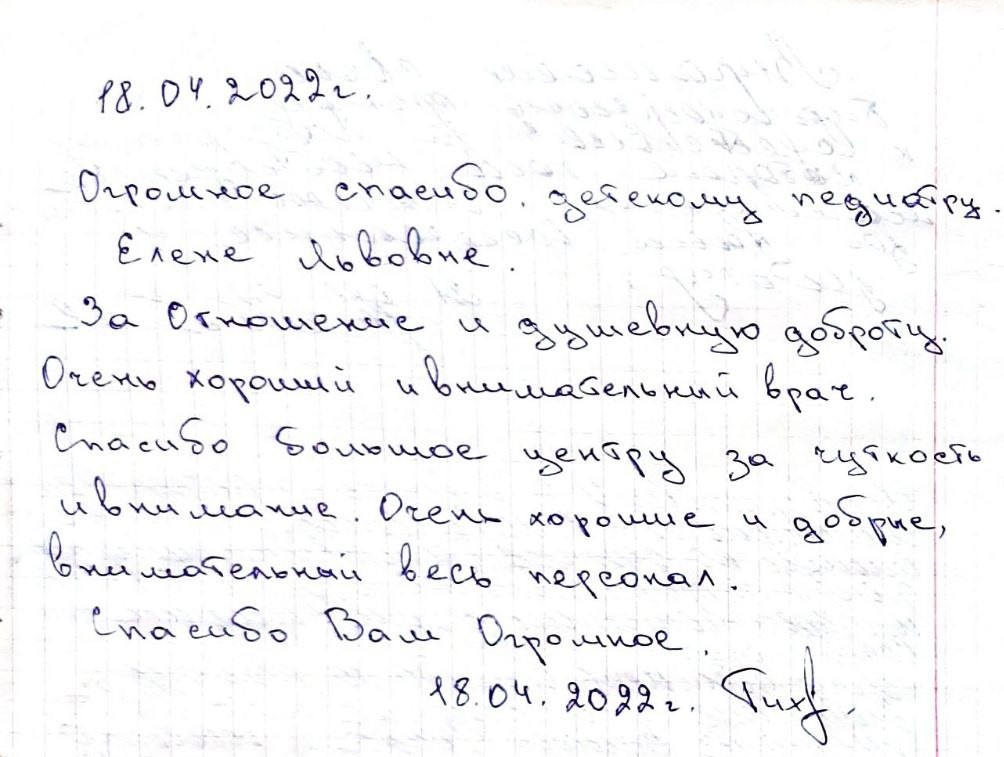 18.04.2022г.
Огромное спасибо детскому педиатру.
Елене Львовне.
За Отношение и душевную доброту.
Очень хороший и внимательный врач.
Спасибо большое центру за чуткость
и внимание. Очень хорошие и добрые,
внимательный весь персонал.
Спасибо Вам Огромное.
18.04.2022г.